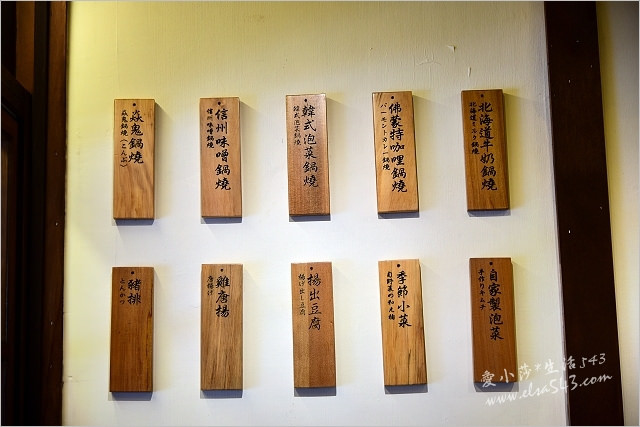 焱鬼鍋燒
焱鬼鍋燒(こんぶ)
信州味噌鍋燒
信州味噌鍋燒
韓式泡菜鍋燒
韓式泡菜鍋燒
佛蒙特咖哩鍋燒
バーモントカレー鍋燒
北海道牛奶鍋燒
北海道ミルク鍋燒
豬排
とんかつ
雞唐揚
唐揚げ
揚出豆腐
揚げ出し豆腐
季節小菜
旬野菜の和え物
自家製泡菜
手作りキムチ
愛小莎*生活543
www.elsa543.com